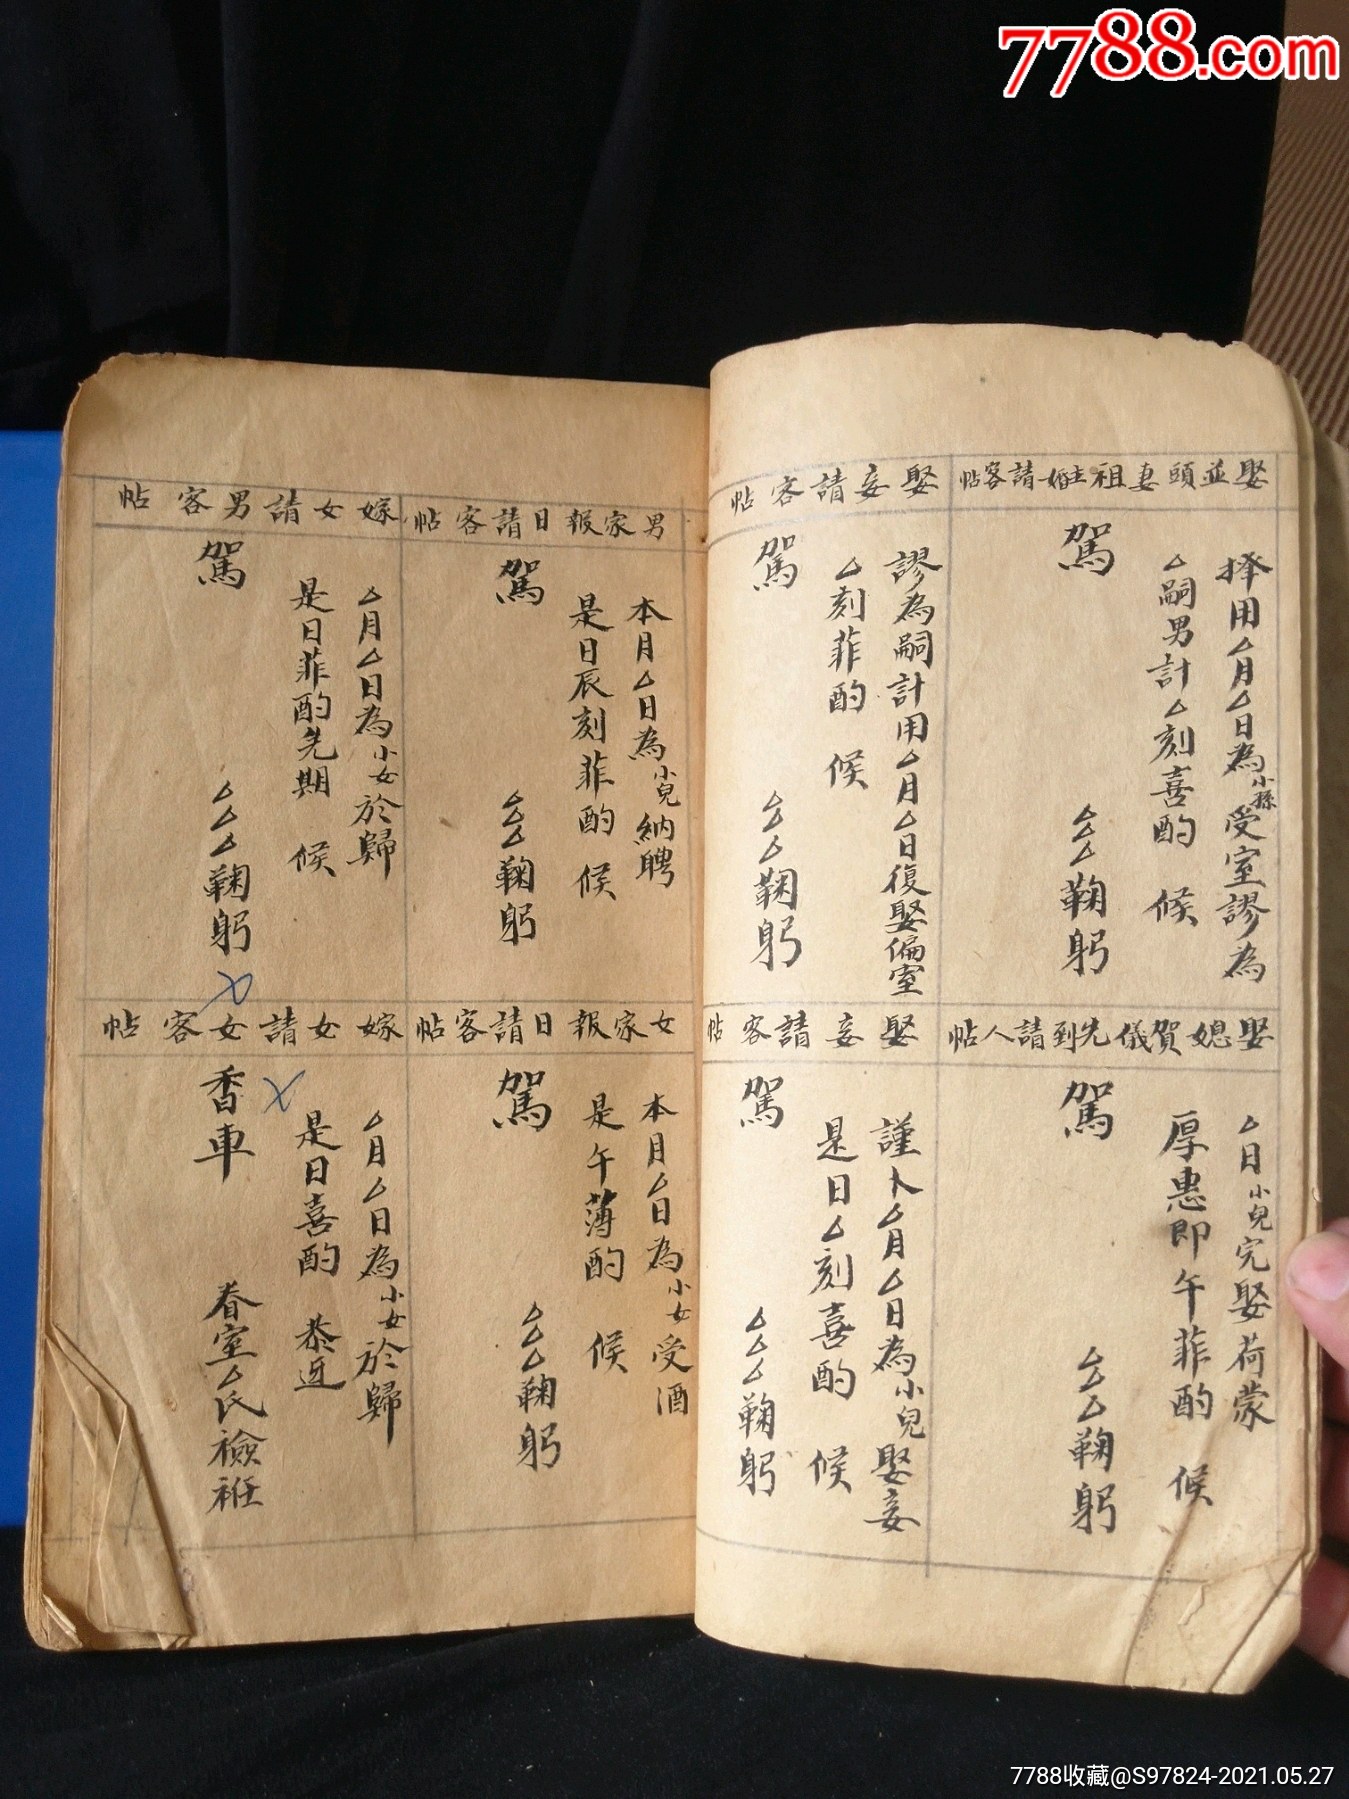 7788.com
娶並頭妻祖主婚請客帖
擇用厶月厶日為小孫受室謬為
厶嗣男計厶刻喜酌 候
駕
厶厶厶鞠躬
娶妾請客帖
謬為嗣計用厶月厶日復娶偏室
厶刻菲酌 候
駕
厶厶厶鞠躬
娶媳賀儀先到請人帖
厶日小兒完娶荷蒙
厚惠即午菲酌 候
駕
厶厶厶鞠躬
娶妾請客帖
謹卜厶月厶日為小兒娶妾
是日厶刻喜酌 候
駕
厶厶厶鞠躬
男家報日請客帖
本月厶日為小兒納聘
是日辰刻菲酌 候
駕
厶厶厶鞠躬
嫁女請男客帖
厶月厶日為小女於歸
是日菲酌先期 候
駕
厶厶厶鞠躬
女家報日請客帖
本月厶日為小女受酒
是午薄酌 候
駕
厶厶厶鞠躬
嫁女請女客帖
厶月厶日為小女於歸
是日喜酌 恭迓
香車
眷室厶氏襝衽
7788收藏@S97824-2021.05.27